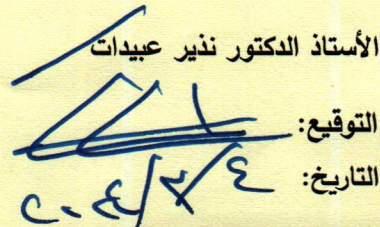 الأستاذ الدكتور نذير عبيدات
التوقيع:
التاريخ: ٤/٣/٢٠٢٤